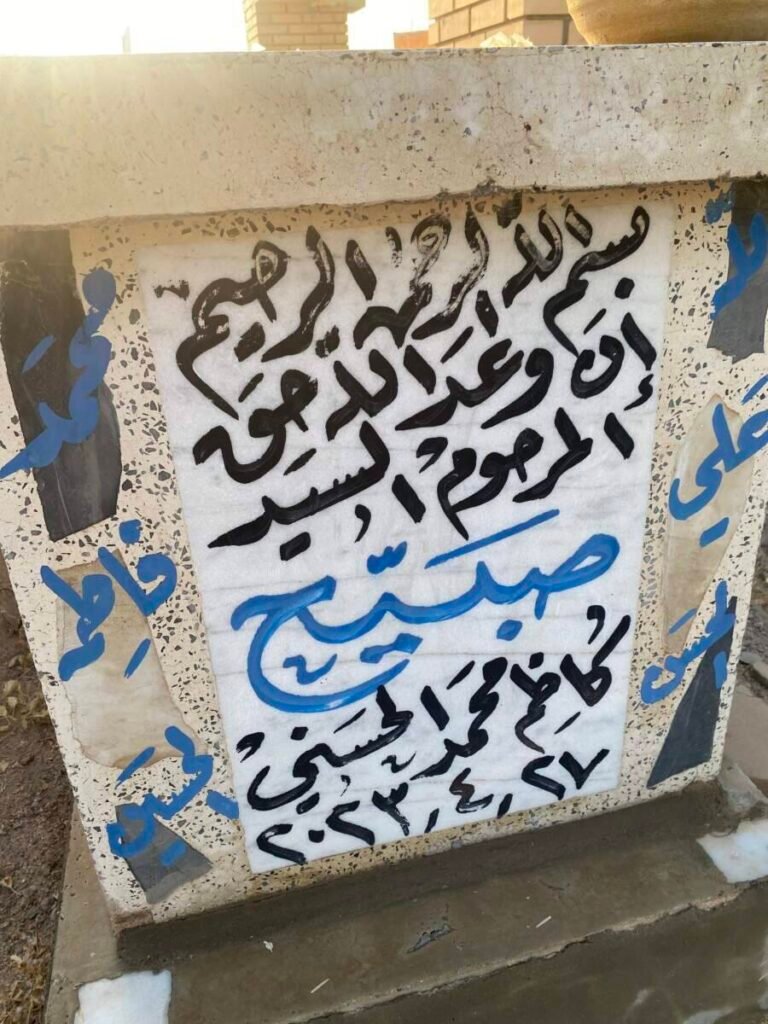 بسم الله الرحمن الرحيم
إن وعد الله حق
المرحوم السيد
صبيح
كاظم محمد الحسني
٢٠٢٣٫٤٫٢٧
محمد
فاطمة
الحسين
علي
الحسن